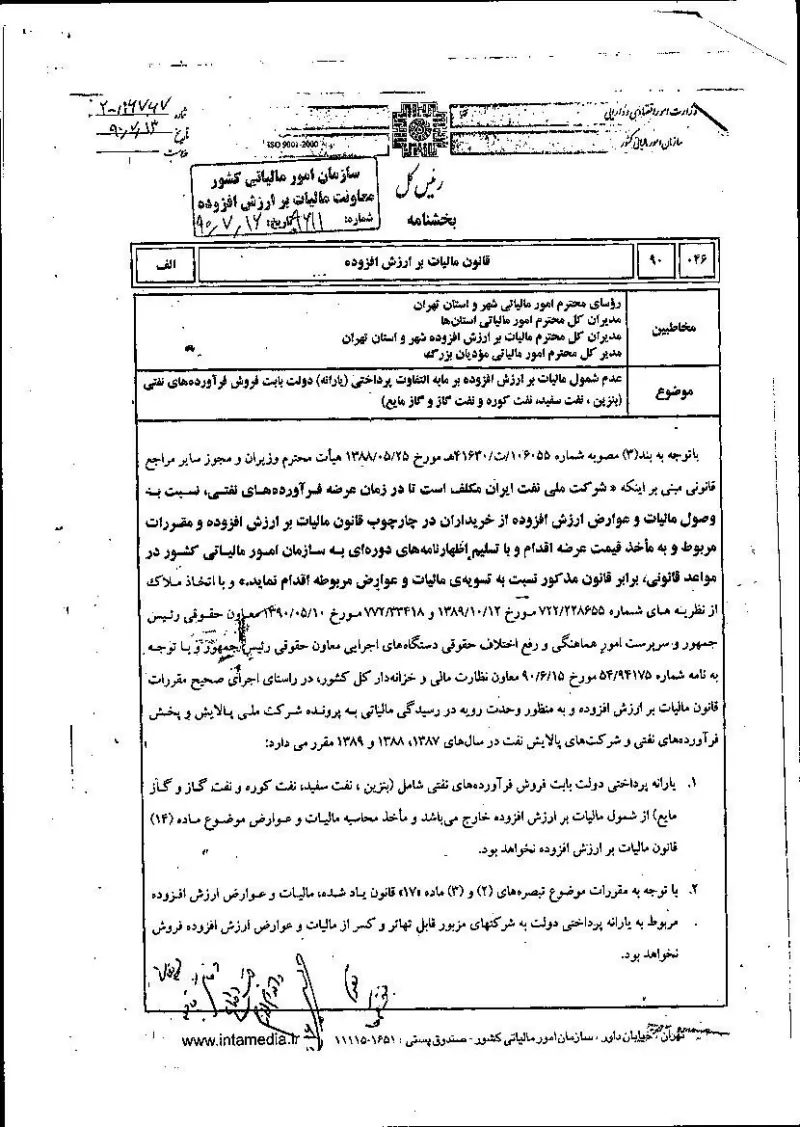 وزارت امور اقتصادی و دارایی
سازمان امور مالیاتی کشور
شماره
تاریخ ۹۰/۷/۱۳
ISO 9001-2000
رئیس کل
بخشنامه
سازمان امور مالیاتی کشور
معاونت مالیات بر ارزش افزوده
شماره: تاریخ: ۹۰/۷/۱۶
۰۴۶ ۹۰ قانون مالیات بر ارزش افزوده الف
مخاطبین
رؤسای محترم امور مالیاتی شهر و استان تهران
مدیران کل محترم امور مالیاتی استان‌ها
مدیران کل محترم مالیات بر ارزش افزوده شهر و استان تهران
مدیر کل محترم امور مالیاتی مؤدیان بزرگ
موضوع
عدم شمول مالیات بر ارزش افزوده بر مابه التفاوت پرداختی (یارانه) دولت بابت فروش فرآورده‌های نفتی
(بنزین ، نفت سفید، نفت کوره و نفت گاز و گاز مایع)
باتوجه به بند(۳) مصوبه شماره ۱۰۶۰۵۵/ت/۴۱۶۳۰هـ مورخ ۱۳۸۸/۰۵/۲۵ هیأت محترم وزیران و مجوز سایر مراجع
قانونی مبنی بر اینکه « شرکت ملی نفت ایران مکلف است تا در زمان عرضه فرآورده‌های نفتی، نسبت به
وصول مالیات و عوارض ارزش افزوده از خریداران در چارچوب قانون مالیات بر ارزش افزوده و مقررات
مربوط و به مأخذ قیمت عرضه اقدام و با تسلیم اظهارنامه‌های دوره‌ای به سازمان امور مالیاتی کشور در
مواعد قانونی، برابر قانون مذکور نسبت به تسویه‌ی مالیات و عوارض مربوطه اقدام نماید.» و با اتخاذ ملاک
از نظریه های شماره ۷۲۲/۲۲۸۶۵۵ مورخ ۱۳۸۹/۱۰/۱۲ و ۷۷۲/۳۳۴۱۸ مورخ ۱۳۹۰/۰۵/۱۰ معاون حقوقی رئیس
جمهور و سرپرست امور هماهنگی و رفع اختلاف حقوقی دستگاه‌های اجرایی معاون حقوقی رئیس جمهور و با توجه
به نامه شماره ۵۴/۹۴۱۷۵ مورخ ۹۰/۶/۱۵ معاون نظارت مالی و خزانه‌دار کل کشور، در راستای اجرای صحیح مقررات
قانون مالیات بر ارزش افزوده و به منظور وحدت رویه در رسیدگی مالیاتی به پرونده شرکت ملی پالایش و پخش
فرآورده‌های نفتی و شرکت‌های پالایش نفت در سال‌های ۱۳۸۷، ۱۳۸۸ و ۱۳۸۹ مقرر می دارد:
۱. یارانه پرداختی دولت بابت فروش فرآورده‌های نفتی شامل (بنزین ، نفت سفید، نفت کوره و نفت گاز و گاز
مایع) از شمول مالیات بر ارزش افزوده خارج می‌باشد و مأخذ محاسبه مالیات و عوارض موضوع ماده (۱۴)
قانون مالیات بر ارزش افزوده نخواهد بود.
۲. با توجه به مقررات موضوع تبصره‌های (۲) و (۳) ماده «۱۷» قانون یاد شده، مالیات و عوارض ارزش افزوده
مربوط به یارانه پرداختی دولت به شرکتهای مزبور قابل تهاتر و کسر از مالیات و عوارض ارزش افزوده فروش
نخواهد بود.
تهران ، خیابان داور ، سازمان امور مالیاتی کشور - صندوق پستی : ۱۶۵۱-۱۱۱۱۵ www.intamedia.ir